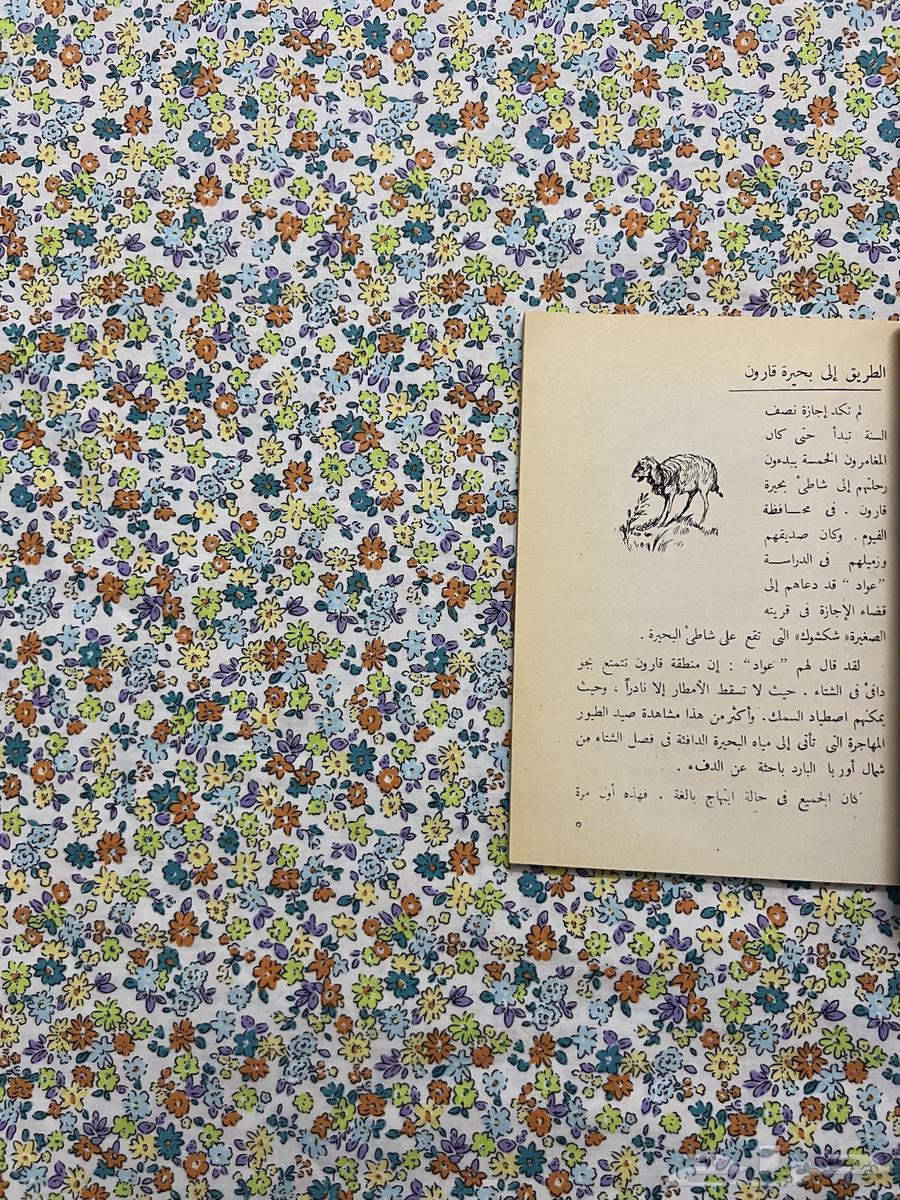 الطريق إلى بحيرة قارون
لم تكد إجازة نصف
السنة تبدأ حتى كان
المغامرون الخمسة يبدءون
رحلتهم إلى شاطئ بحيرة
قارون . فى محـــافظة
الفيوم . وكان صديقهم
وزميلهم فى الدراســـة
”عواد “ قد دعاهم إلى
قضاء الإجازة فى قريته
الصغيرة« شكشوك» التى تقع على شاطئ البحيرة .
لقد قال لهم ”عواد“ : إن منطقة قارون تتمتع بجو
دافئ فى الشتاء . حيث لا تسقط الأمطار إلا نادراً ، وحيث
يمكنهم اصطياد السمك. وأكثر من هذا مشاهدة صيد الطيور
المهاجرة التى تأتى إلى مياه البحيرة الدافئة فى فصل الشتاء من
شمال أوربا البارد باحثة عن الدفء .
كان الجميع فى حالة ابتهاج بالغة . فهذه أول مرة
٥